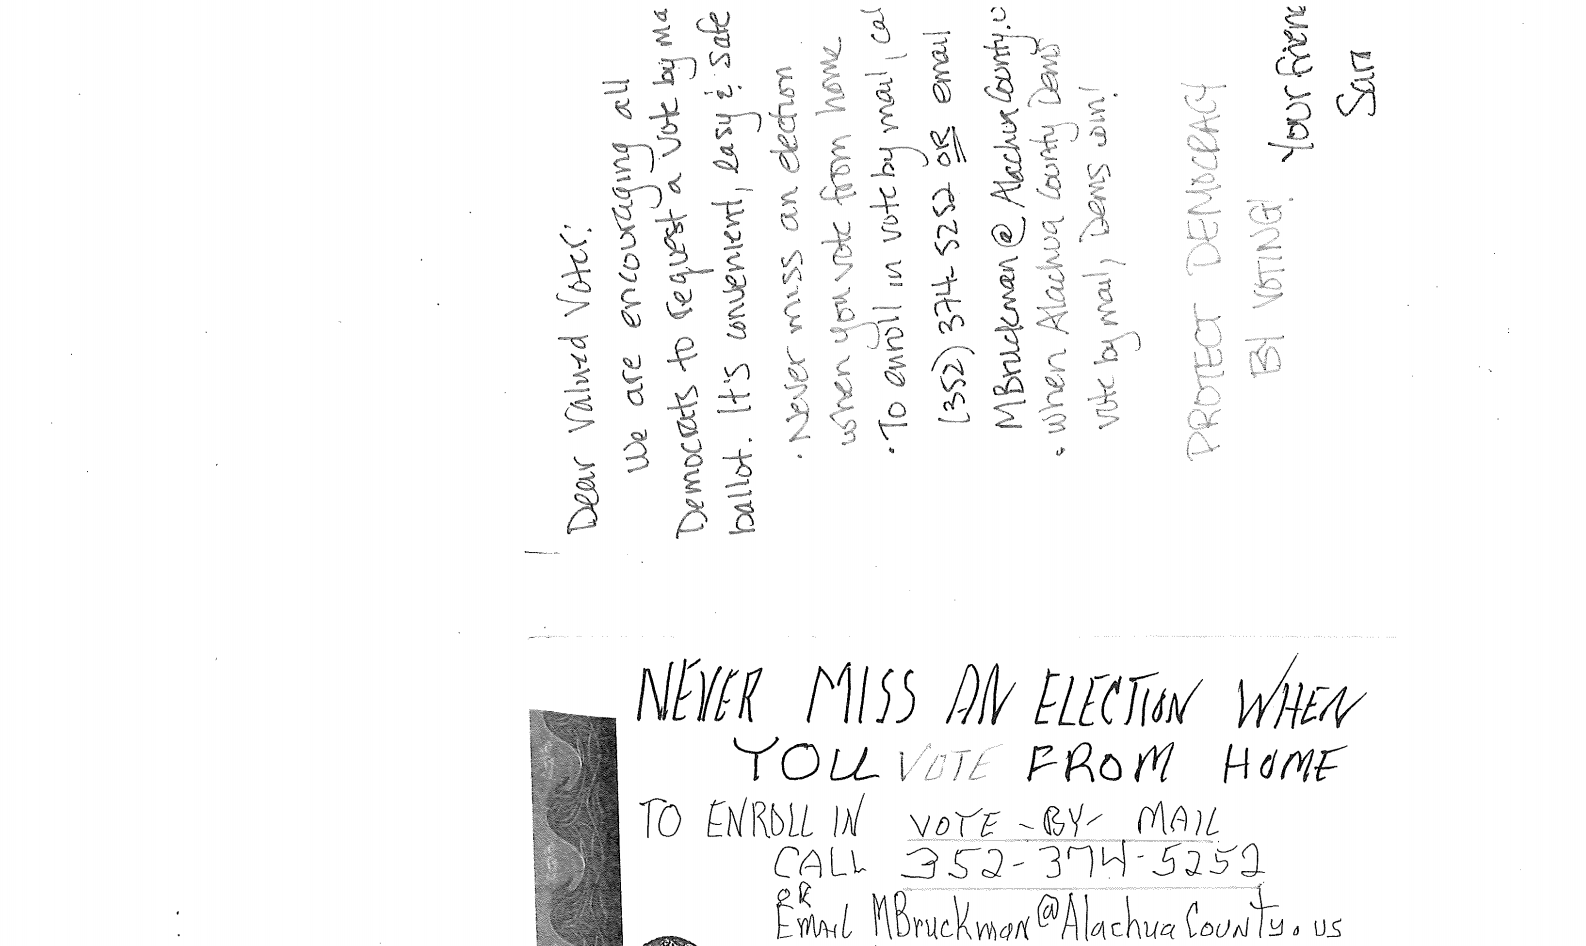 Dear Valued Voter:
We are encouraging all
Democrats to request a vote by ma
ballot. It's convenient, easy & safe
· Never miss an election
when you vote from home
· To enroll in vote by mail, cal
(352) 374-5252 OR email
MBruckman@AlachuaCounty.u
· When Alachua County Dems
vote by mail, Dems win!
PROTECT DEMOCRACY
BY VOTING!
Your frien
NEVER MISS AN ELECTION WHEN
YOU VOTE FROM HOME
TO ENROLL IN VOTE-BY-MAIL
CALL 352-374-5252
OR
EMAIL MBruckman@AlachuaCounty.us